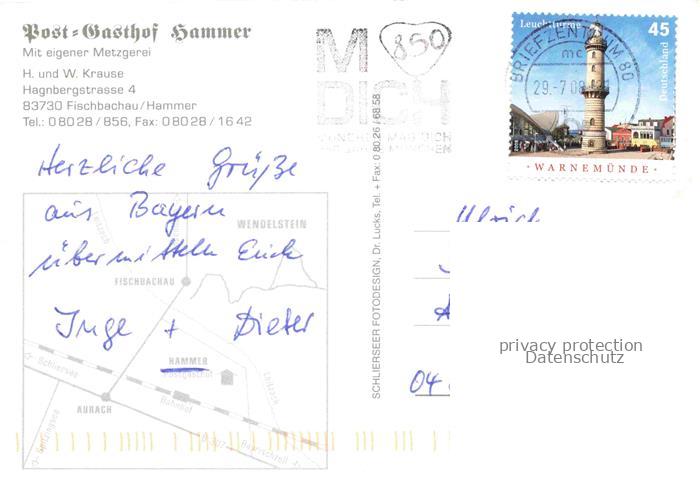 Post-Gasthof Hammer
Mit eigener Metzgerei
H. und W. Krause
Hagnbergstrasse 4
83730 Fischbachau/Hammer
Tel.: 08028/856, Fax: 08028/1642
M 850
DICH
Leuchttürme 45
Deutschland
BRIEFZENTRUM 80
mc
29.-7.08
WARNEMÜNDE
Herzliche Grüße
aus Bayern
übermitteln Euch
Inge + Dieter
WENDELSTEIN
FISCHBACHAU
HAMMER
Postgasthof
Schliersee
Leitzach
Bahnhof
AURACH
B 307
Bayrischzell
SCHLIERSEER FOTODESIGN, Dr. Lucks, Tel. + Fax: 0 80 26 / 68 58
Ulrich
04
privacy protection
Datenschutz